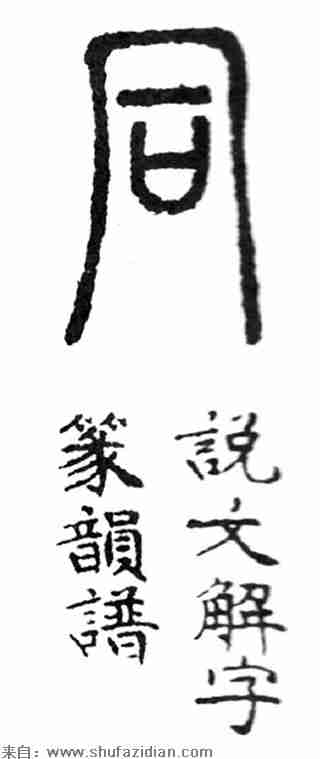 同
説文解字
篆韻譜
来自：www.shufazidian.com